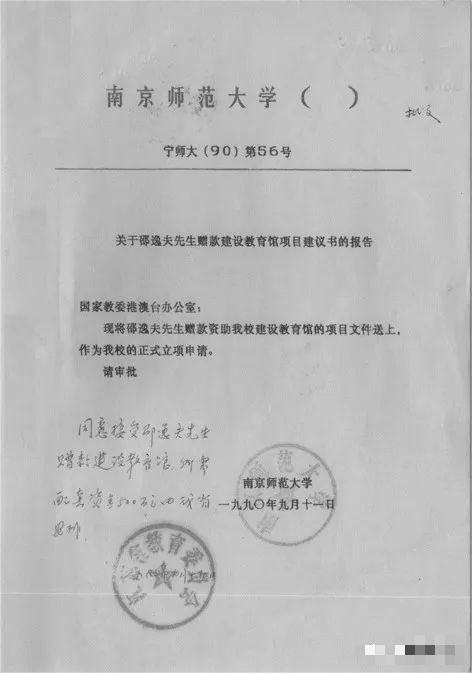 南京师范大学（ ）
批文
宁师大（90）第56号
关于邵逸夫先生赠款建设教育馆项目建议书的报告
国家教委港澳台办公室：
现将邵逸夫先生赠款资助我校建设教育馆的项目文件送上，
作为我校的正式立项申请。
请审批
同意接受邵逸夫先生
赠款建设教育馆，所需
配套资金500万由我省
南京师范大学
一九九〇年九月十一日
南京师范大学
教育委员会